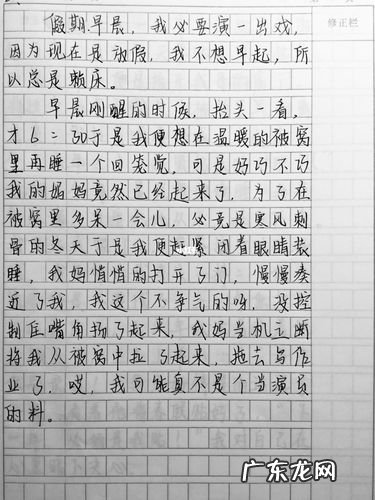 修正栏
假期早晨，我必要演一出戏，
因为现在是放假，我不想早起，所
以总是赖床。
早晨刚醒的时候，抬头一看，
才6：30于是我便想在温暖的被窝
里再睡一个回笼觉，可是好巧不巧
我的妈妈竟然已经起来了，为了在
被窝里多呆一会儿，必竟是寒风刺
骨的冬天于是我便赶紧闭着眼睛装
睡，我妈悄悄的打开了门，慢慢凑
近了我，我这个不争气的呀，没控
制住嘴角扬了起来，我妈当机立断
将我从被窝中拉了起来，拖去写作
业了，哎，我可能真不是个当演员
的料。
广东龙网